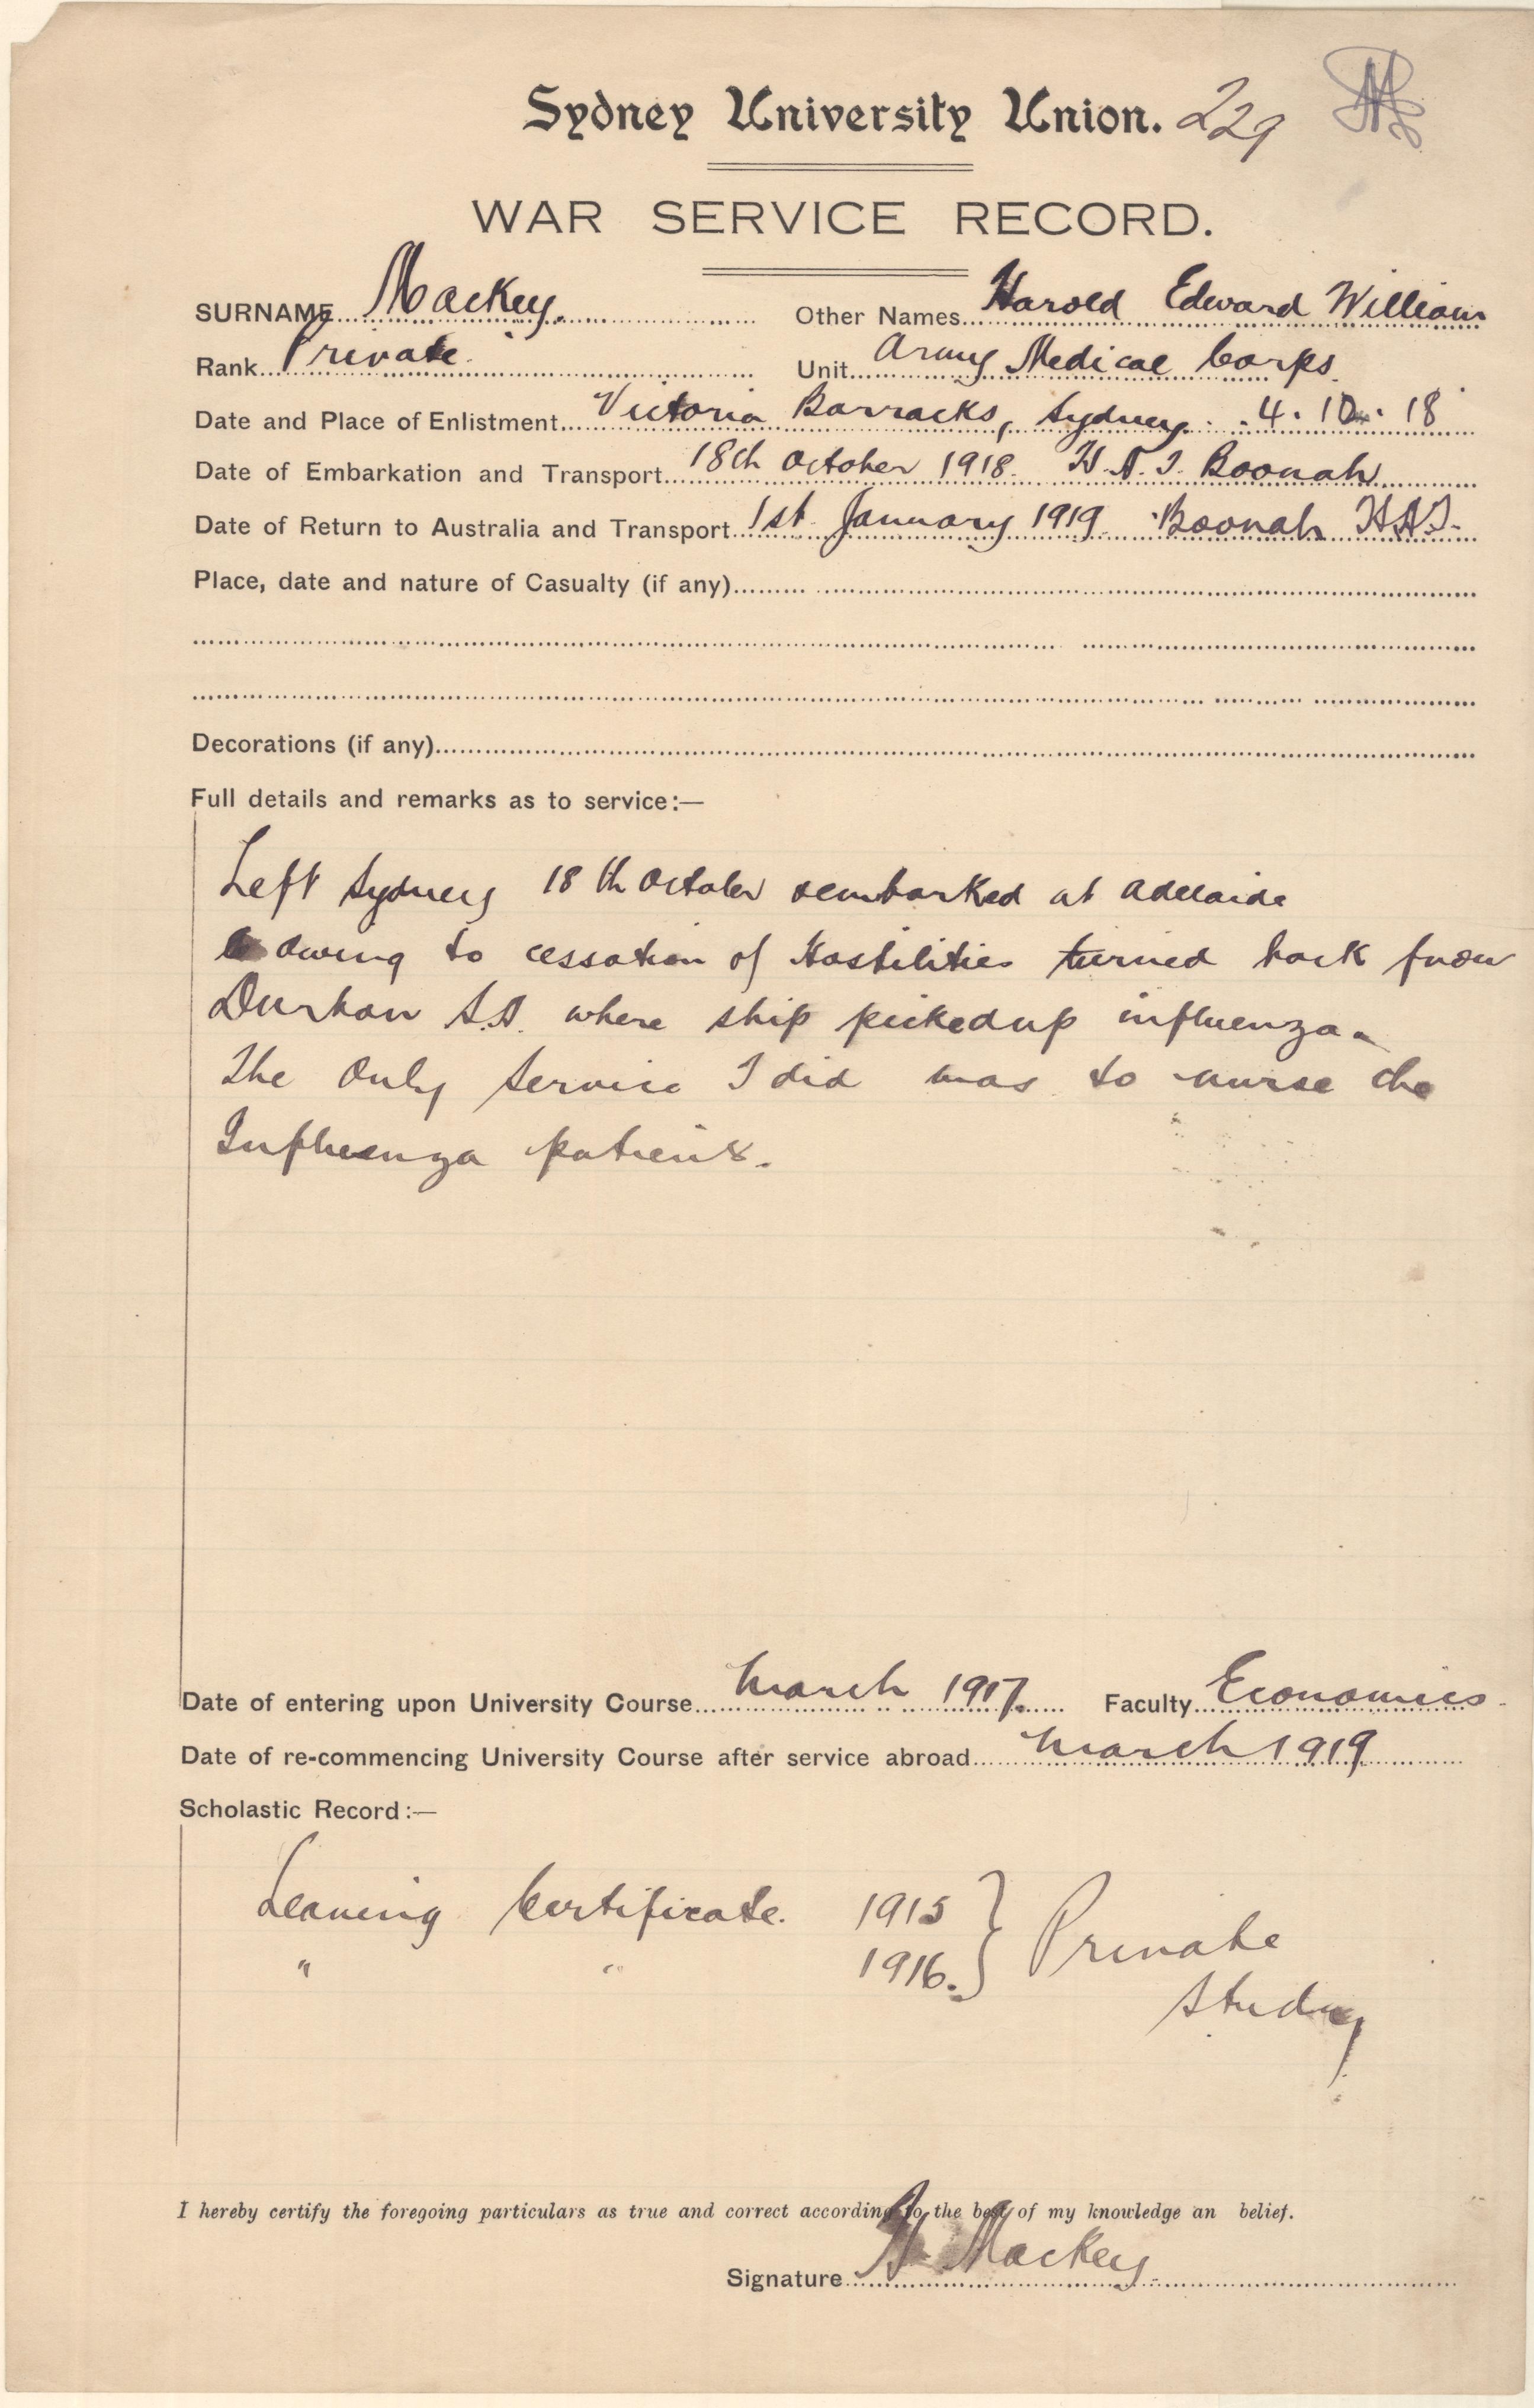 Sydney University Union. 229
WAR SERVICE RECORD.
SURNAME Mackey. Other Names Harold Edward William
Rank Private Unit Army Medical Corps.
Date and Place of Enlistment Victoria Barracks, Sydney. 4. 10. 18
Date of Embarkation and Transport 18th October 1918. H.A.T. Boonah
Date of Return to Australia and Transport 1st January 1919 Boonah HAT.
Place, date and nature of Casualty (if any)
Decorations (if any)
Full details and remarks as to service:—
Left Sydney 18th October embarked at Adelaide
owing to cessation of Hostilities turned back from
Durban S.A. where ship picked up influenza.
The only service I did was to nurse the
Influenza patients.
Date of entering upon University Course March 1917. Faculty Economics.
Date of re-commencing University Course after service abroad March 1919
Scholastic Record:—
Leaving Certificate. 1915 } Private
" " 1916. Study
I hereby certify the foregoing particulars as true and correct according to the best of my knowledge an belief.
Signature H. Mackey.